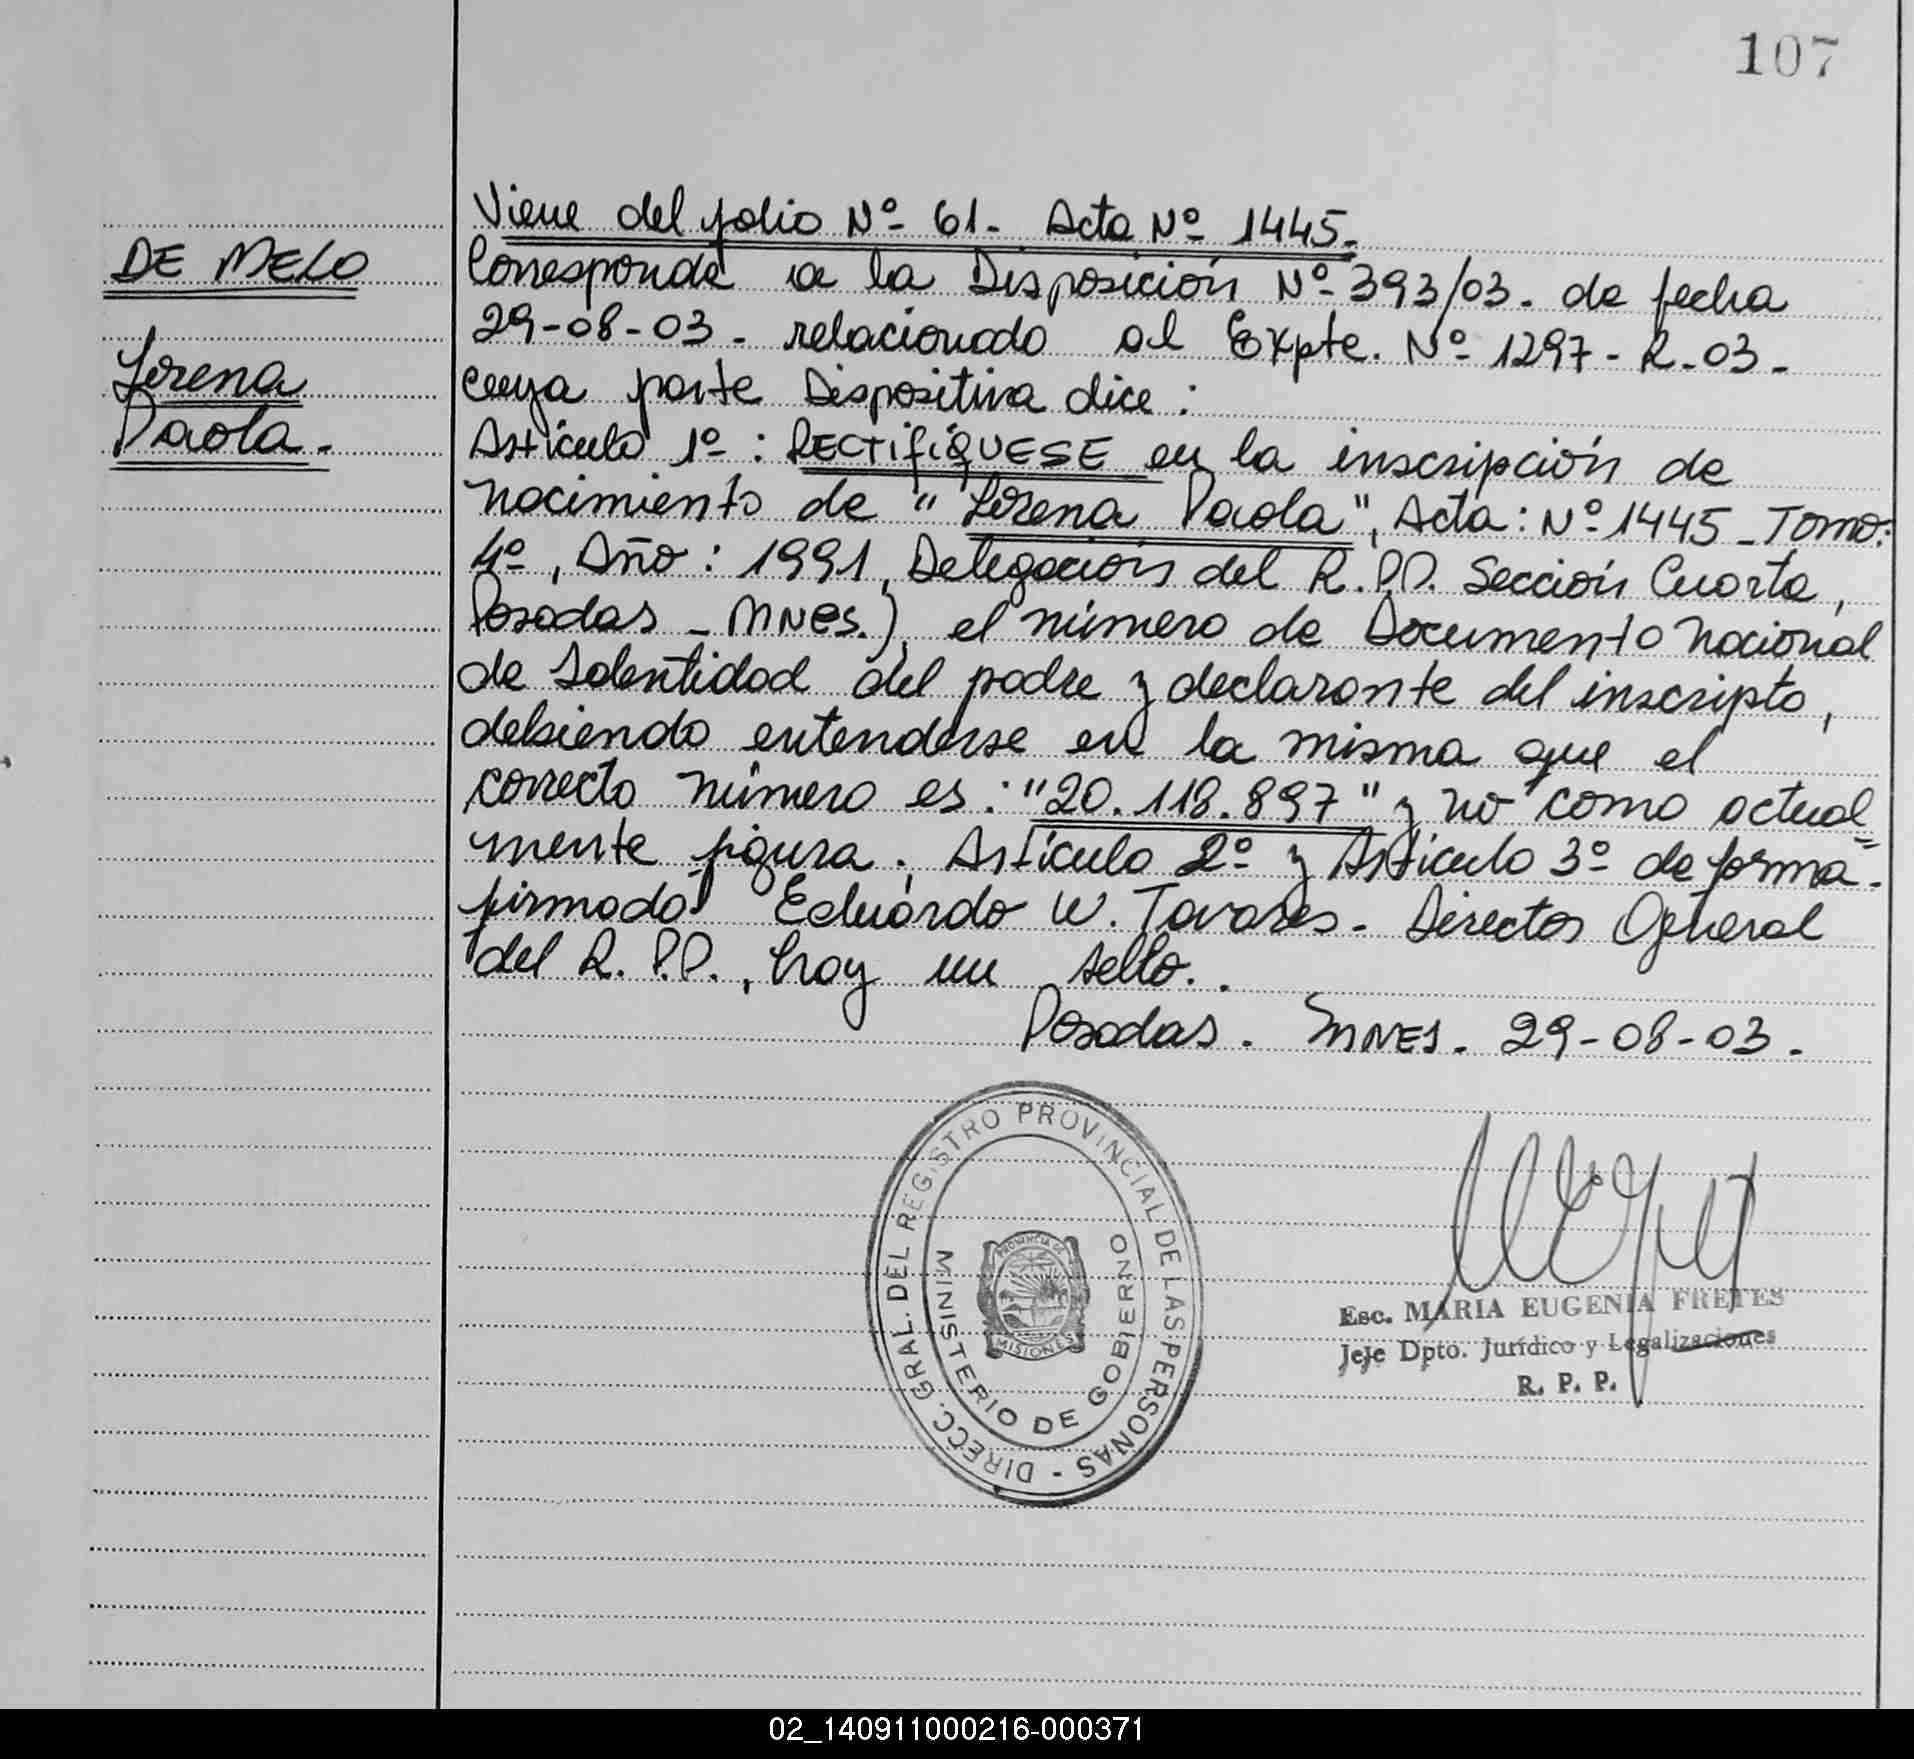 107
Viene del folio Nº 61- Acta Nº 1445-
DE MELO
Lorena
Paola.
Corresponde a la Disposición Nº 393/03. de fecha
29-08-03. relacionado al Expte. Nº 1297-R-03-
cuya parte Dispositiva dice:
Artículo 1º: RECTIFIQUESE en la inscripción de
nacimiento de "Lorena Paola", Acta: Nº 1445-Tomo:
4º, Año: 1991, Delegación del R.P.P. Sección Cuarta,
Posadas - MNES.), el número de Documento Nacional
de Identidad del padre y declarante del inscripto,
debiendo entenderse en la misma que el
correcto número es: "20.118.897" y no como actual=
mente figura. Artículo 2º y Artículo 3º de forma.
firmado Eduardo W. Tavares. Director General
del R.P.P., hay un sello..
Posadas. MNES. 29-08-03.
DIRECC. GRAL. DEL REGISTRO PROVINCIAL DE LAS PERSONAS -
MINISTERIO DE GOBIERNO
PROVINCIA DE
MISIONES
Esc. MARIA EUGENIA FRETES
Jeje Dpto. Jurídico y Legalizaciones
R. P. P.
02_140911000216-000371